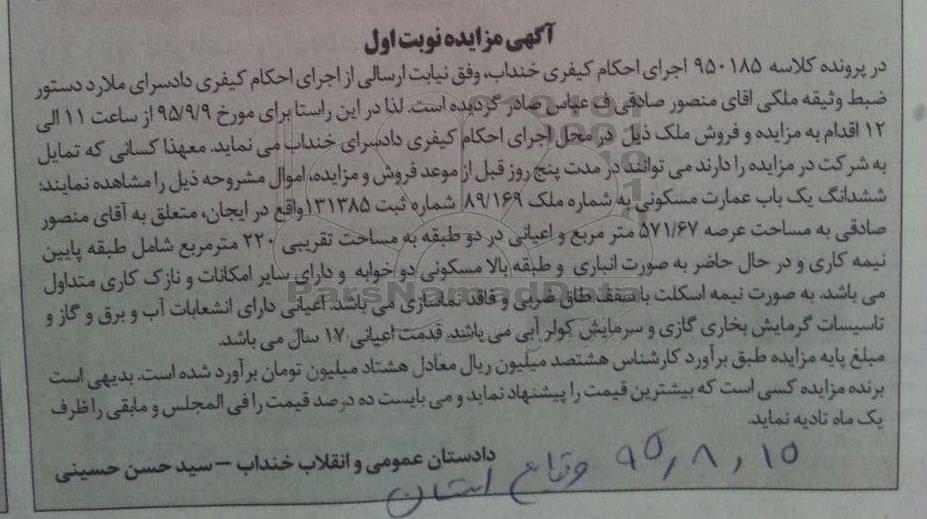 آگهی مزایده نوبت اول
در پرونده کلاسه ۹۵۰۱۸۵ اجرای احکام کیفری خنداب، وفق نیابت ارسالی از اجرای احکام کیفری دادسرای ملارد دستور
ضبط وثیقه ملکی اقای منصور صادقی ف عباس صادر گردیده است. لذا در این راستا برای مورخ ۹۵/۹/۹ از ساعت ۱۱ الی
۱۲ اقدام به مزایده و فروش ملک ذیل در محل اجرای احکام کیفری دادسرای خنداب می نماید. معهذا کسانی که تمایل
به شرکت در مزایده را دارند می توانند در مدت پنج روز قبل از موعد فروش و مزایده، اموال مشروحه ذیل را مشاهده نمایند:
ششدانگ یک باب عمارت مسکونی به شماره ملک ۸۹/۱۶۹ شماره ثبت ۱۳۱۳۸۵ واقع در ایجان، متعلق به آقای منصور
صادقی به مساحت عرصه ۵۷۱/۶۷ متر مربع و اعیانی در دو طبقه به مساحت تقریبی ۲۲۰ مترمربع شامل طبقه پایین
نیمه کاری و در حال حاضر به صورت انباری و طبقه بالا مسکونی دو خوابه و دارای سایر امکانات و نازک کاری متداول
می باشد. به صورت نیمه اسکلت با سقف طاق ضربی و فاقد نماسازی می باشد. اعیانی دارای انشعابات آب و برق و گاز و
تاسیسات گرمایش بخاری گازی و سرمایش کولر آبی می باشد. قدمت اعیانی ۱۷ سال می باشد.
مبلغ پایه مزایده طبق برآورد کارشناس هشتصد میلیون ریال معادل هشتاد میلیون تومان برآورد شده است. بدیهی است
برنده مزایده کسی است که بیشترین قیمت را پیشنهاد نماید و می بایست ده درصد قیمت را فی المجلس و مابقی را ظرف
یک ماه تادیه نماید.
دادستان عمومی و انقلاب خنداب – سید حسن حسینی
۹۵٫۸٫۱۵ وقایع استان
ParsNamadData